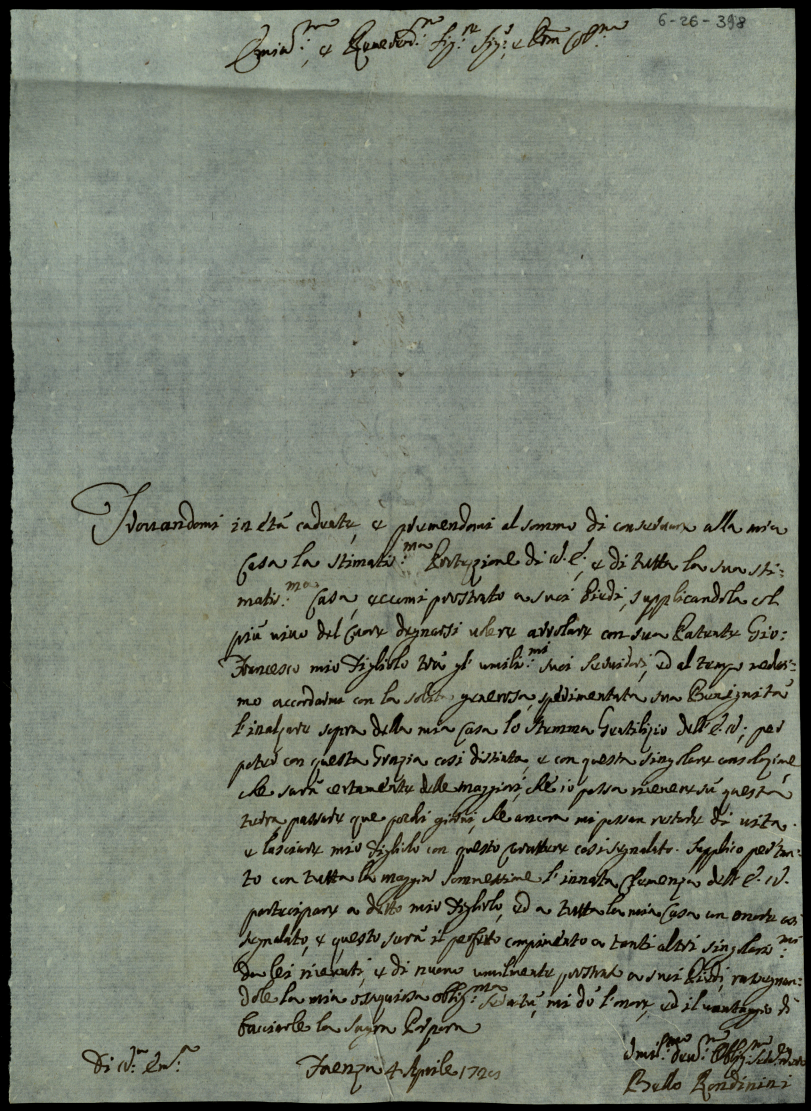 6-26-398
Emin.mo, e Reverend.mo Sig.re Sig.r, e Pron Col.mo
Trovandomi in età cadente, e premendomi al sommo di conservare alla mia
Casa la stimatis.ma Protezione di V.E., e di tutta la sua sti=
matis.ma Casa, eccomi prostrato a suoi Piedi, supplicandola col
più vivo del Cuore degnarsi volere arrolare con sua Patente Gio:
Francesco mio Figliolo trà gl' umilis.mi suoi Servidori, ed al tempo medesi=
mo accordarmi con la solita generosa, sperimentata sua Benignità
l'inalzare sopra della mia Casa lo Stemma Gentilizio dell' E.V., per
poter con questa Grazia così distinta, e con questa singolare consolazione
che sarà certamente delle maggiori, che io possa ricevere sù questa
terra passare que pochi giorni, che ancora mi possan restare di vita.
e lasciare mio Figliolo con questo carattere così segnalato. Supplico pertan=
to con tutta la maggior sommessione l'innata Clemenza dell' E.V.
partecipare a detto mio Figliolo, ed a tutta la mia Casa un onore così
segnalato, e questo sarà il perfetto compimento a tanti altri singolaris.mi
da lei ricevuti, e di nuovo umilmente prostrato a suoi Piedi, rassegnan=
dole la mia ossequiosa obblig.ma servitù, mi dò l'onore, ed il vantaggio di
baciarle la Sagra Porpora
Di V.ra Em.za
Faenza 4 Aprile
Umil.mo Dev.mo Obblig.mo
Rondinini